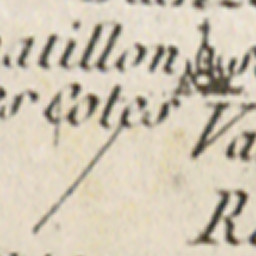 atillon s
es Cotes
Va
R